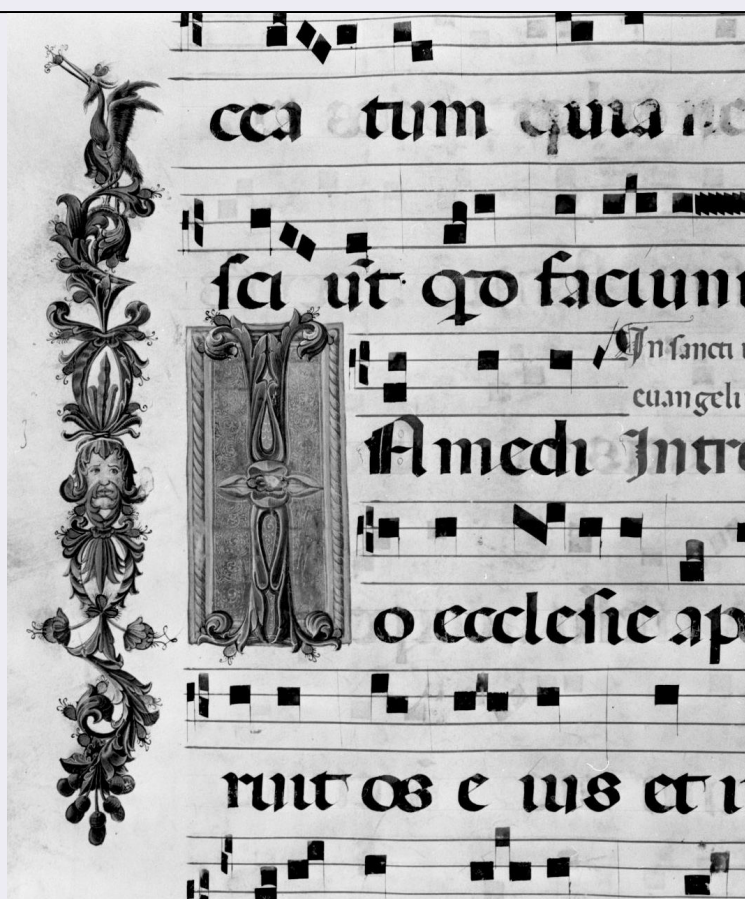 cca tum quia
sci ut qd faciunt
In sancti
euangeli
I
Amedi Intro
o ecclesie ap
ruit os e ius et